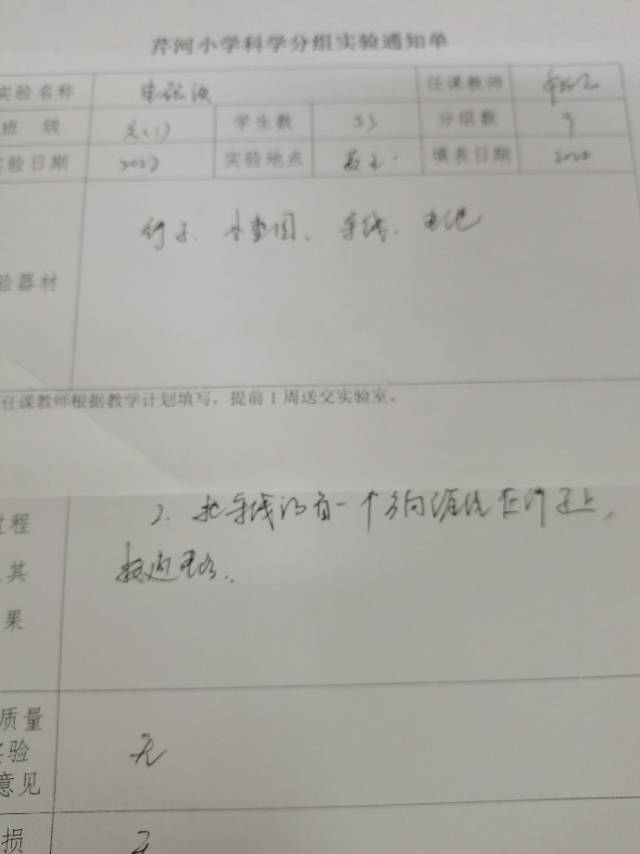 芹河小学科学分组实验通知单
实验名称 任课教师
班 级 学生数 53 分组数 9
验日期 实验地点 填表日期
钉子、小垫圈、导线、电池
验器材
任课教师根据教学计划填写，提前1周送交实验室。
过程 2. 把导线沿着一个方向缠绕在钉子上，
其 接通电路.
果
质量
实验 无
意见
损 无